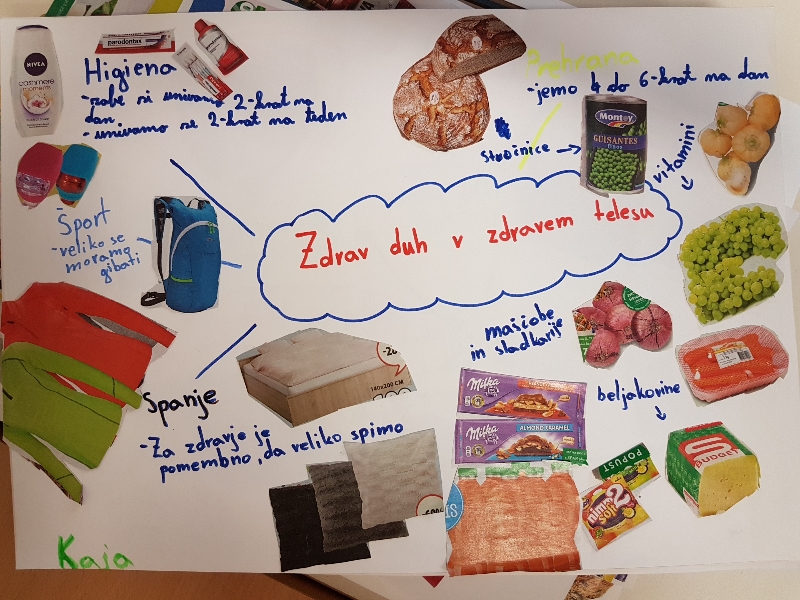 Higiena
-zobe si umivamo 2-krat na
dan
-umivamo se 2-krat na teden
NIVEA
cashmere
moments
parodontax
Prehrana
-jemo 4 do 6-krat na dan
stročnice →
Montey
GUISANTES
vitamini
Šport
-veliko se
moramo
gibati
Zdrav duh v zdravem telesu
maščobe
in sladkarije
beljakovine
Spanje
-Za zdravje je
pomembno, da veliko spimo
140x200 CM
Milka
Milka
ALMOND CARAMEL
POPUST
nimm
2
soft
BUDGET
Kaja